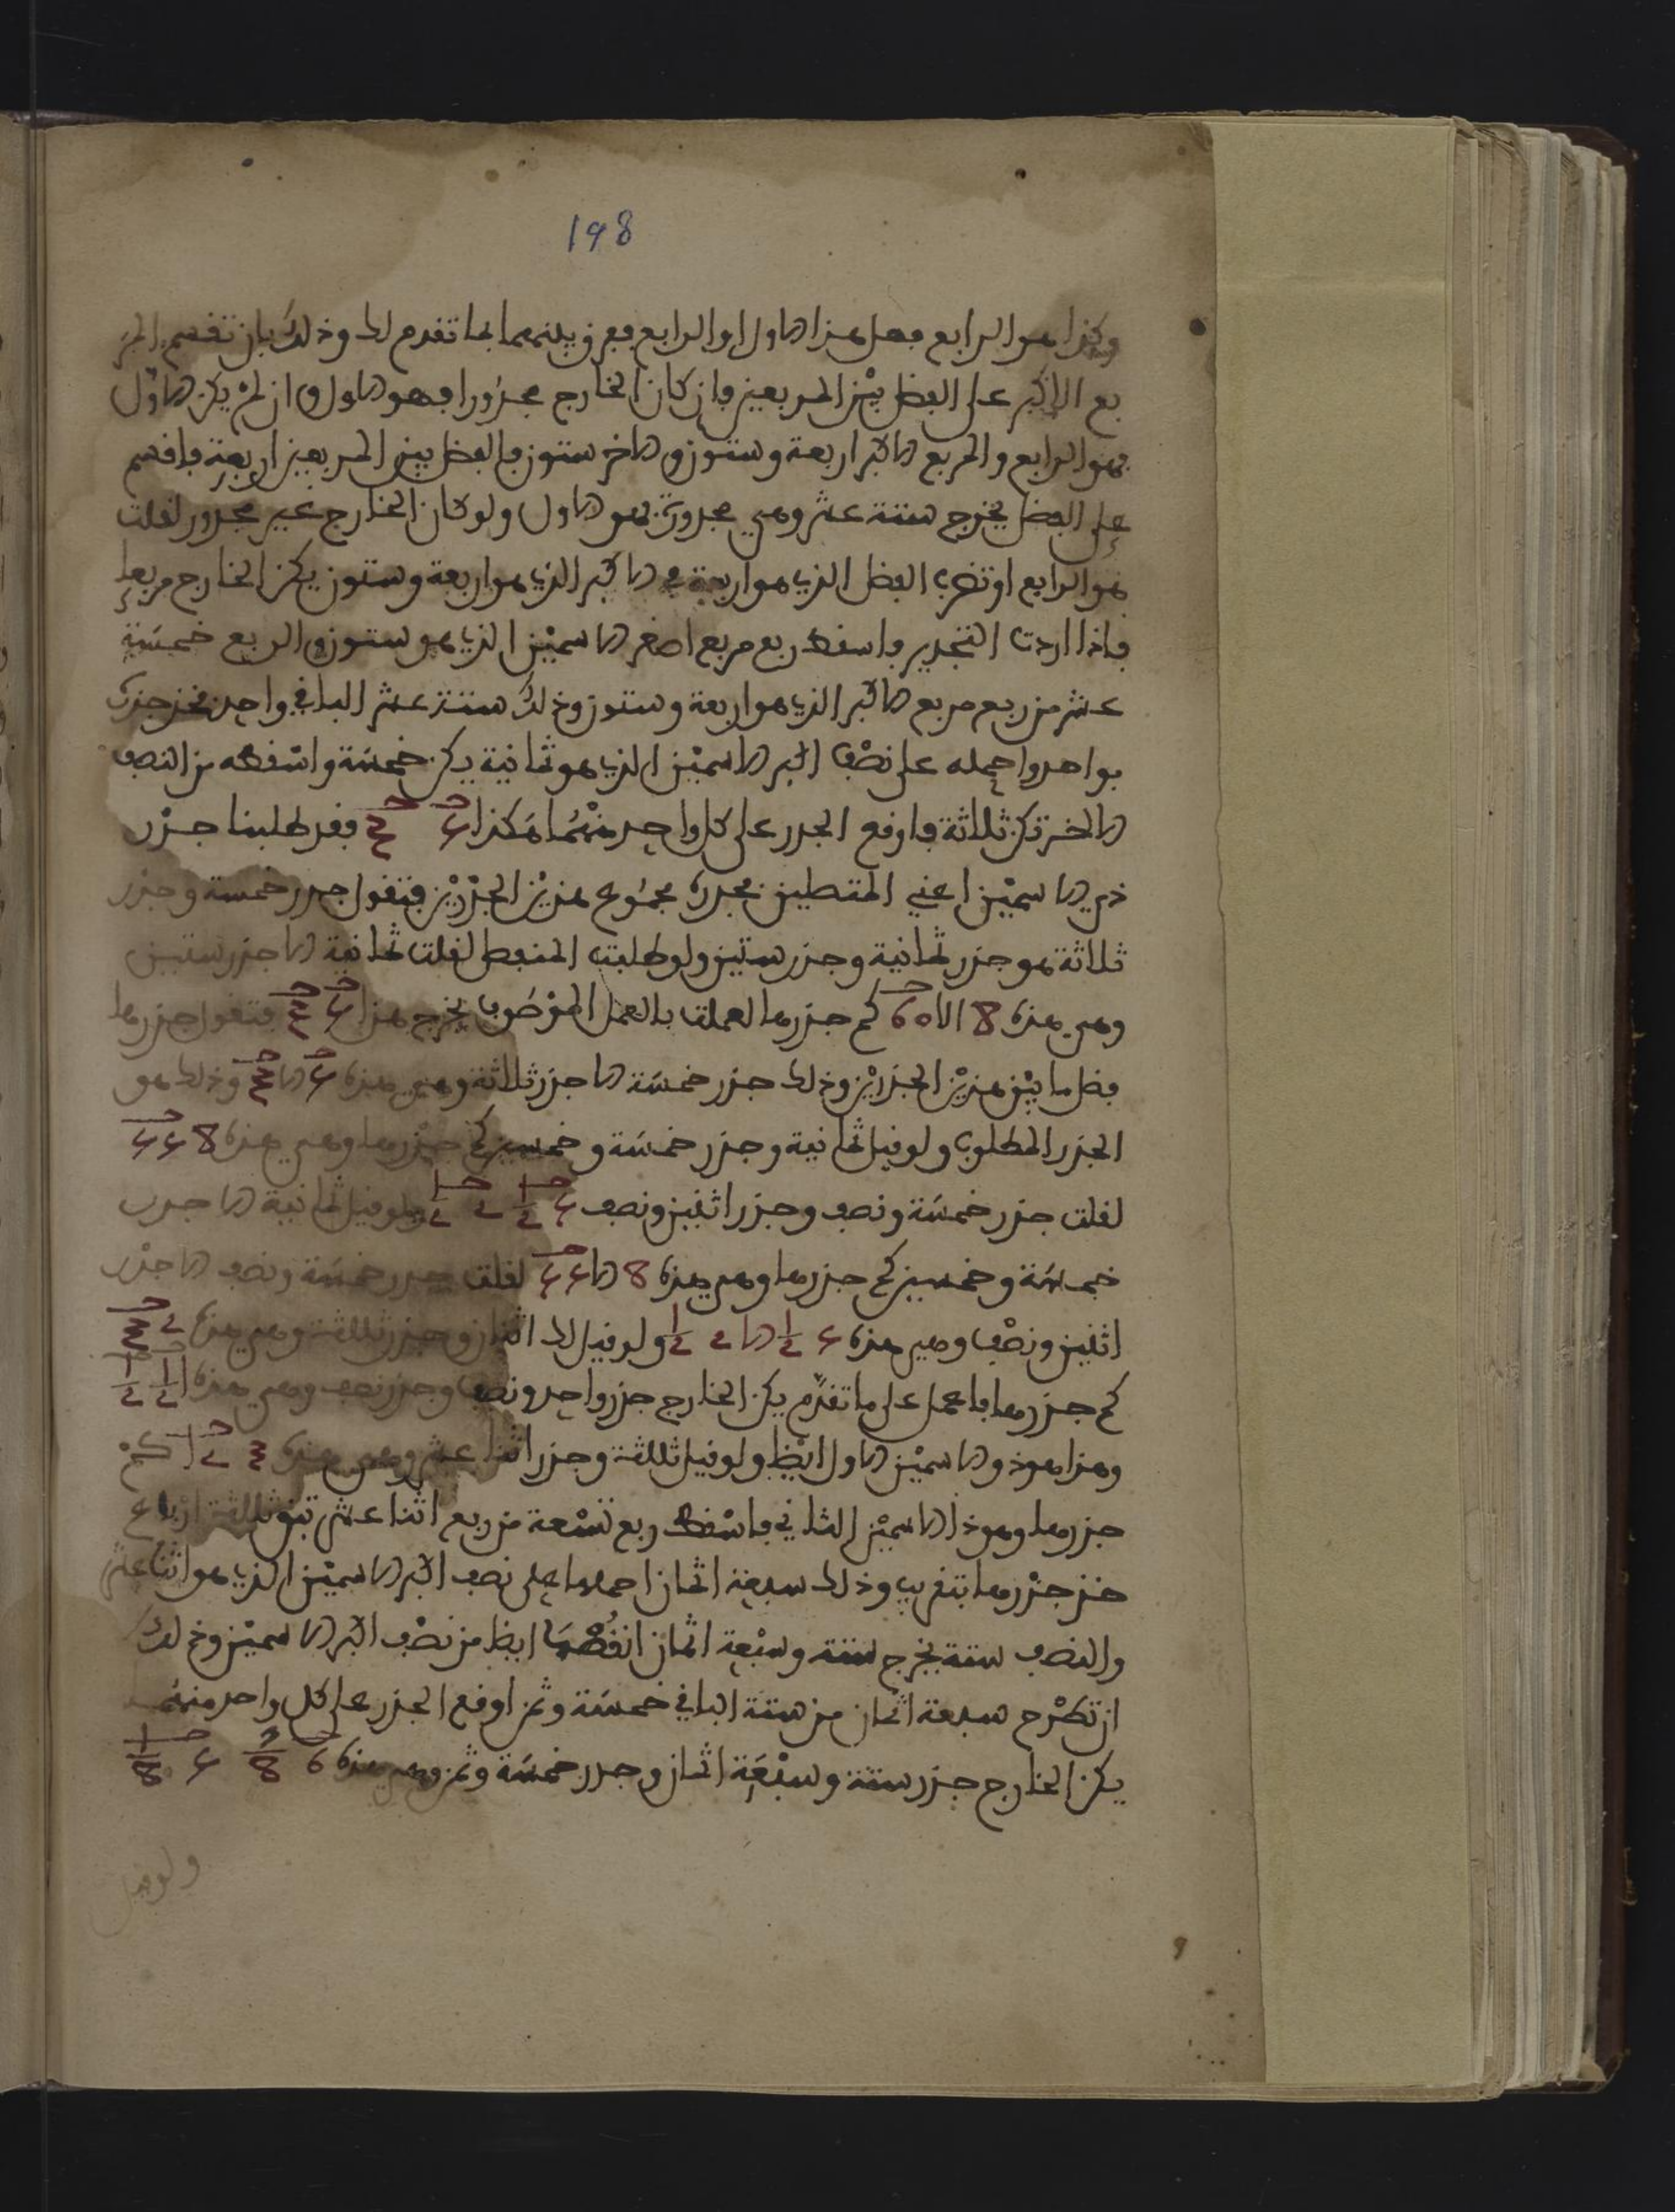 198
وكذا هو الرابع فهل هذا الاول او الرابع ففرق بينهما بما تقدم لك وذلك بان تقسم المر
بع الاكبر على الفضل بين المربعين فان كان الخارج مجذورا فهو الاول وان لم يكن الاول
فهو الرابع والمربع الاكبر اربعة وستون والاخر ستون فالفضل بين المربعين اربعة فاقسم
على الفضل يخرج ستة عشر وهي مجذورة فهو الاول ولو كان الخارج غير مجذور لقلت
هو الرابع او تضرب الفضل الذي هو اربعة في الاكبر الذي هو اربعة وستون يكن الخارج مربعا
فاذا اردت التجذير فاسقط ربع مربع اصغر الاسمين الذي هو ستون والربع خمسة
عشر من ربع مربع الاكبر الذي هو اربعة وستون وذلك ستة عشر الباقي واحد فخذ جذره
بواحد واحمله على نصف اكبر الاسمين الذي هو ثمانية يكن خمسة واسقطه من النصف
الاخر تكن ثلاثة فاوقع الجذر على كل واحد منهما هكذا 5 3 فقد طلبنا جذر
ذي الاسمين اعني المتصلين فجذره مجموع هذين الجذرين فتقول جذر خمسة وجذر
ثلاثة هو جذر ثمانية وجذر ستين ولو طلبت المنفصل لقلت ثمانية الا جذر ستين
وهي هذه 8 الا 60 كم جذرها لعملت بالعمل الموصوف يخرج هذا 5 3 فتقول جذرها
فضل ما بين هذين الجذرين وذلك جذر خمسة الا جذر ثلاثة وهي هذه 5 الا 3 وذلك هو
الجذر المطلوب ولو قيل ثمانية وجذر خمسة وخمسين كم جذرها وهي هذه 8 55
لقلت جذر خمسة ونصف وجذر اثنين ونصف 5 1/2 2 1/2 ولو قيل ثمانية الا جذر
خمسة وخمسين كم جذرها وهي هذه 8 الا 55 لقلت جذر خمسة ونصف الا جذر
اثنين ونصف وهي هذه 5 1/2 الا 2 1/2 ولو قيل لك اثنان وجذر ثلثة وهي هذه 2 3
كم جذرها فاعمل على ما تقدم يكن الخارج جذر واحد ونصف وجذر نصف وهي هذه 1 1/2 1/2
وهذا هو ذو الاسمين الاول ايظا ولو قيل ثلثة وجذر اثنا عشر وهي هذه 3 12 كم
جذرها وهو ذا الاسمين الثاني فاسقط ربع تسعة من ربع اثنا عشر تبق ثلثة ارباع
خذ جذرها بتقريب وذلك سبعة اثمان احملها على نصف اكبر الاسمين الذي هو اثنا عشر
والنصف ستة يخرج ستة وسبعة اثمان انقصها ايظا من نصف اكبر الاسمين وذلك
ان تطرح سبعة اثمان من ستة الباقي خمسة وثمن اوقع الجذر على كل واحد منهما
يكن الخارج جذر ستة وسبعة اثمان وجذر خمسة وثمن وهي هذه 6 7/8 5 1/8
ولو قيل